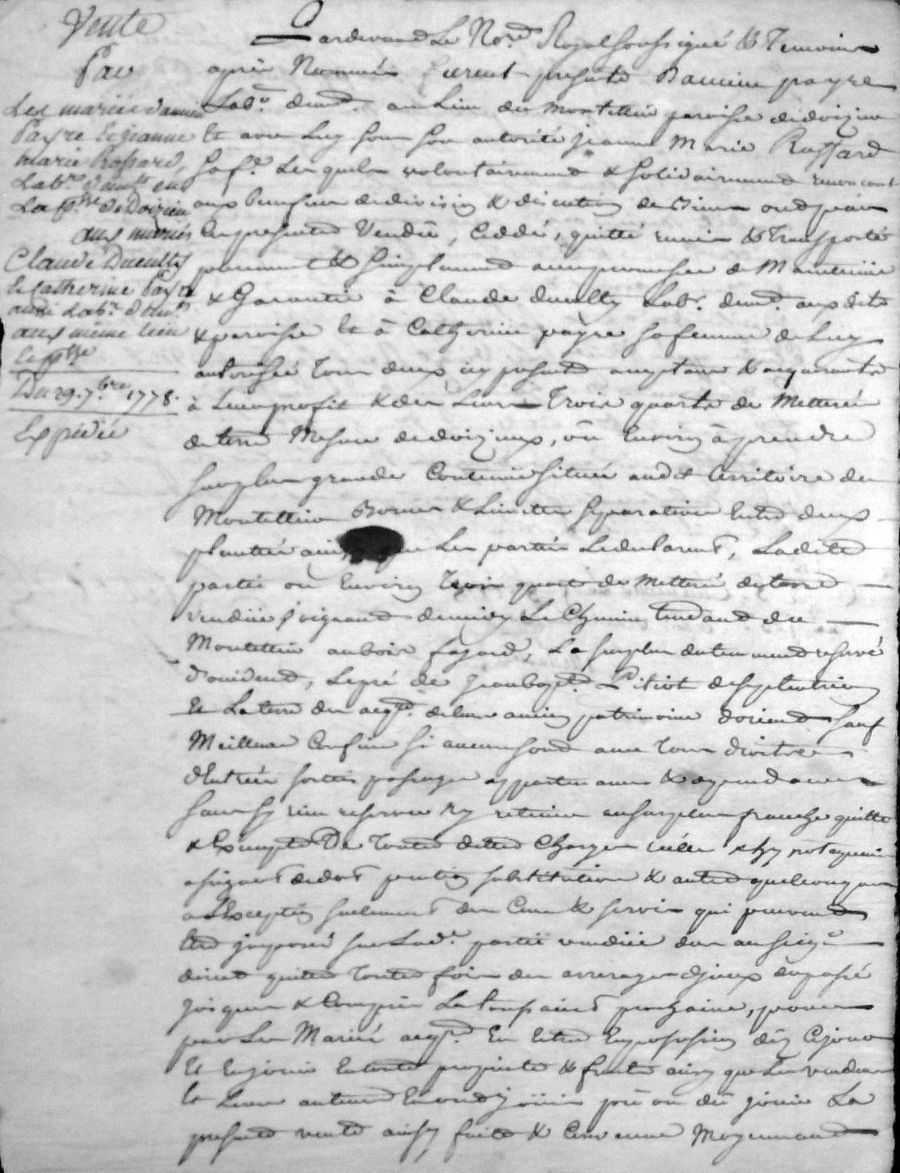 Vente
Par
Les mariés damien
Payre & Jeanne
marie Rossard,
Lab.rs demt. en
La p.sse de Doizieu
aux mariés
Claude Ducultty
& Catherine Payre
aussi Lab.rs demt.
aux même lieu
& p.sse
Du 29. 7.bre 1778.
Expediée
Pardevant Le No.re Royal soussigné & Temoins
après Nommés furent presents Damien payre
Lab.r demt. au Lieu du Montellier paroisse de doizieu
Et avec Luy sous son autorité Jeanne Marie Rossard
sa fe. Lesquels volontairement & solidairement renoncant
aux benefices de division & discution de Biens
presentes Vendu, Ceddé, quitté remis & Transporté
purement & simplement avec promesse de Maintenir
& Garantir à Claude ducultty Lab.r demt. aux dits
& paroisse Et à Catherine payre sa femme de Luy
autorisée Tous deux icy presents acceptans & acquerants
à Leur profit & des Leurs Trois quarts de Metterée
de terre Mesure de doizieux, ou Environ à prendre
sur plus grande Contenue située audit territoire du
Montellier Bornes & Limittes separatives Entre deux
plantées ainsy que Les parties Le declarent, Ladite
partie ou Environ Trois quarts de Metterée de terre
vendue joignant de midy Le Chemin tendant du
Montellier au bois fayard, Le surplus du tenement reservé
d'occident, Le pré de de septentrion
& La terre des acq.rs de leur ancien patrimoine d'orient sauf
Meilleurs Confins si aucuns sont avec Tous droits
d'Entrée sorties passages appartenances & dependances
sans sy rien reserver ny retenir au surplus franche quitte
& Exempte De Toutes dettes Charges
substitution & autres quelconques
a L'exception seulement des Cens & servis qui peuvent
Etre imposés sur Lad.e partie vendue dus au seigr.
direct quitte Toutes fois des arrerages d'iceux du passé
jusques & Compris La Toussaints prochaine, pour
par Les Mariés acq.rs En Etre En possession dès Cejour
Et En jouir En toute propriete & fruits ainsy que Les vendeurs
& Leurs auteurs En ont joui pu ou dû jouir La
presente vente ainsy faite & Convenue Moyennant